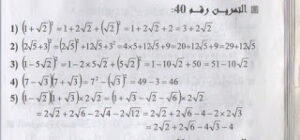 التمرين رقم 40:
1) (1+√2)² = 1+2√2+(√2)² = 1+2√2+2 = 3+2√2
2) (2√5+3)² = (2√5)²+12√5+3² = 4×5+12√5+9 = 20+12√5+9 = 29+12√5
3) (1-5√2)² = 1-2×5√2+(5√2)² = 1-10√2+50 = 51-10√2
4) (7-√3)(7+√3) = 7²-(√3)² = 49-3 = 46
5) (1-√2)(1+√3)×2√2 = (1+√3-√2-√6)×2√2
= 2√2+2√6-2√4-2√12 = 2√2+2√6-4-2×2√3
= 2√2+2√6-4√3-4